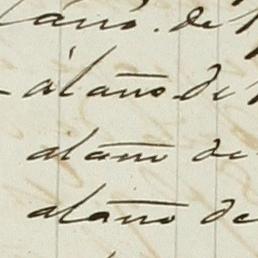 año. de
al año de
al año de
al año de